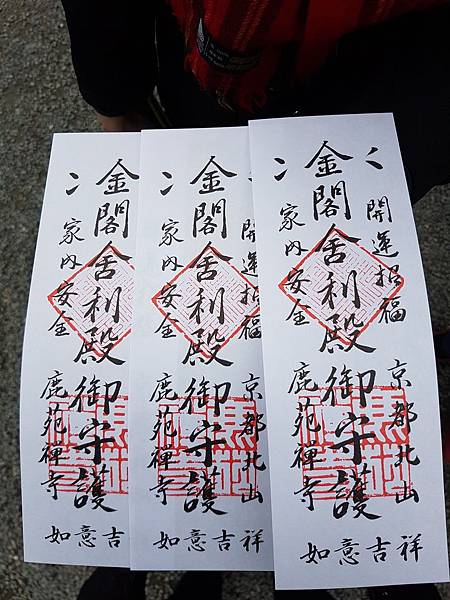 金閣舍利殿御守護
家内安全
鹿苑禅寺
如意吉
金閣舍利殿御守護
開運招福
京都北山
家内安全
鹿苑禅寺
如意吉祥
開運招福
京都北山
金閣舍利殿御守護
家内安全
鹿苑禅寺
如意吉祥